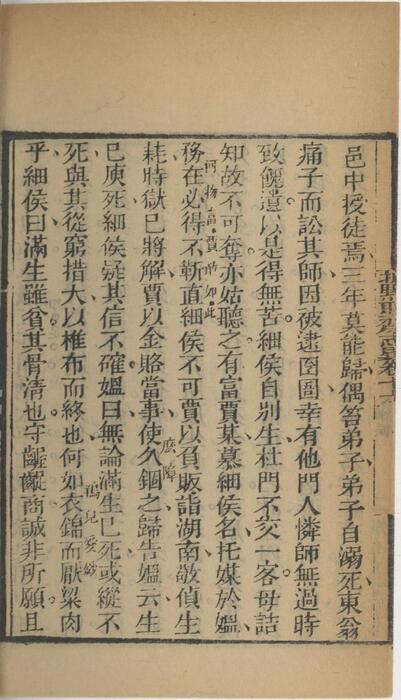 邑中授徒焉三年莫能歸偶笞弟子弟子自溺死東翁
痛子而訟其師因被逮囹圄幸有他門人憐師無過時
致餽遺以是得無苦細侯自別生杜門不交一客母詰
知故不可奪亦姑聽之有富賈某慕細侯名托媒於媼
何物富賈如此
務在必得不靳直細侯不可賈以負販詣湖南敬偵生
麽障
耗時獄已將解賈以金賂當事使久錮之歸告媼云生
已庾死細侯疑其信不確媼曰無論滿生已死或縱不
媽兒愛鈔
死與其從窮措大以椎布而終也何如衣錦而厭粱肉
乎細侯曰滿生雖貧其骨清也守齷齪商誠非所願且